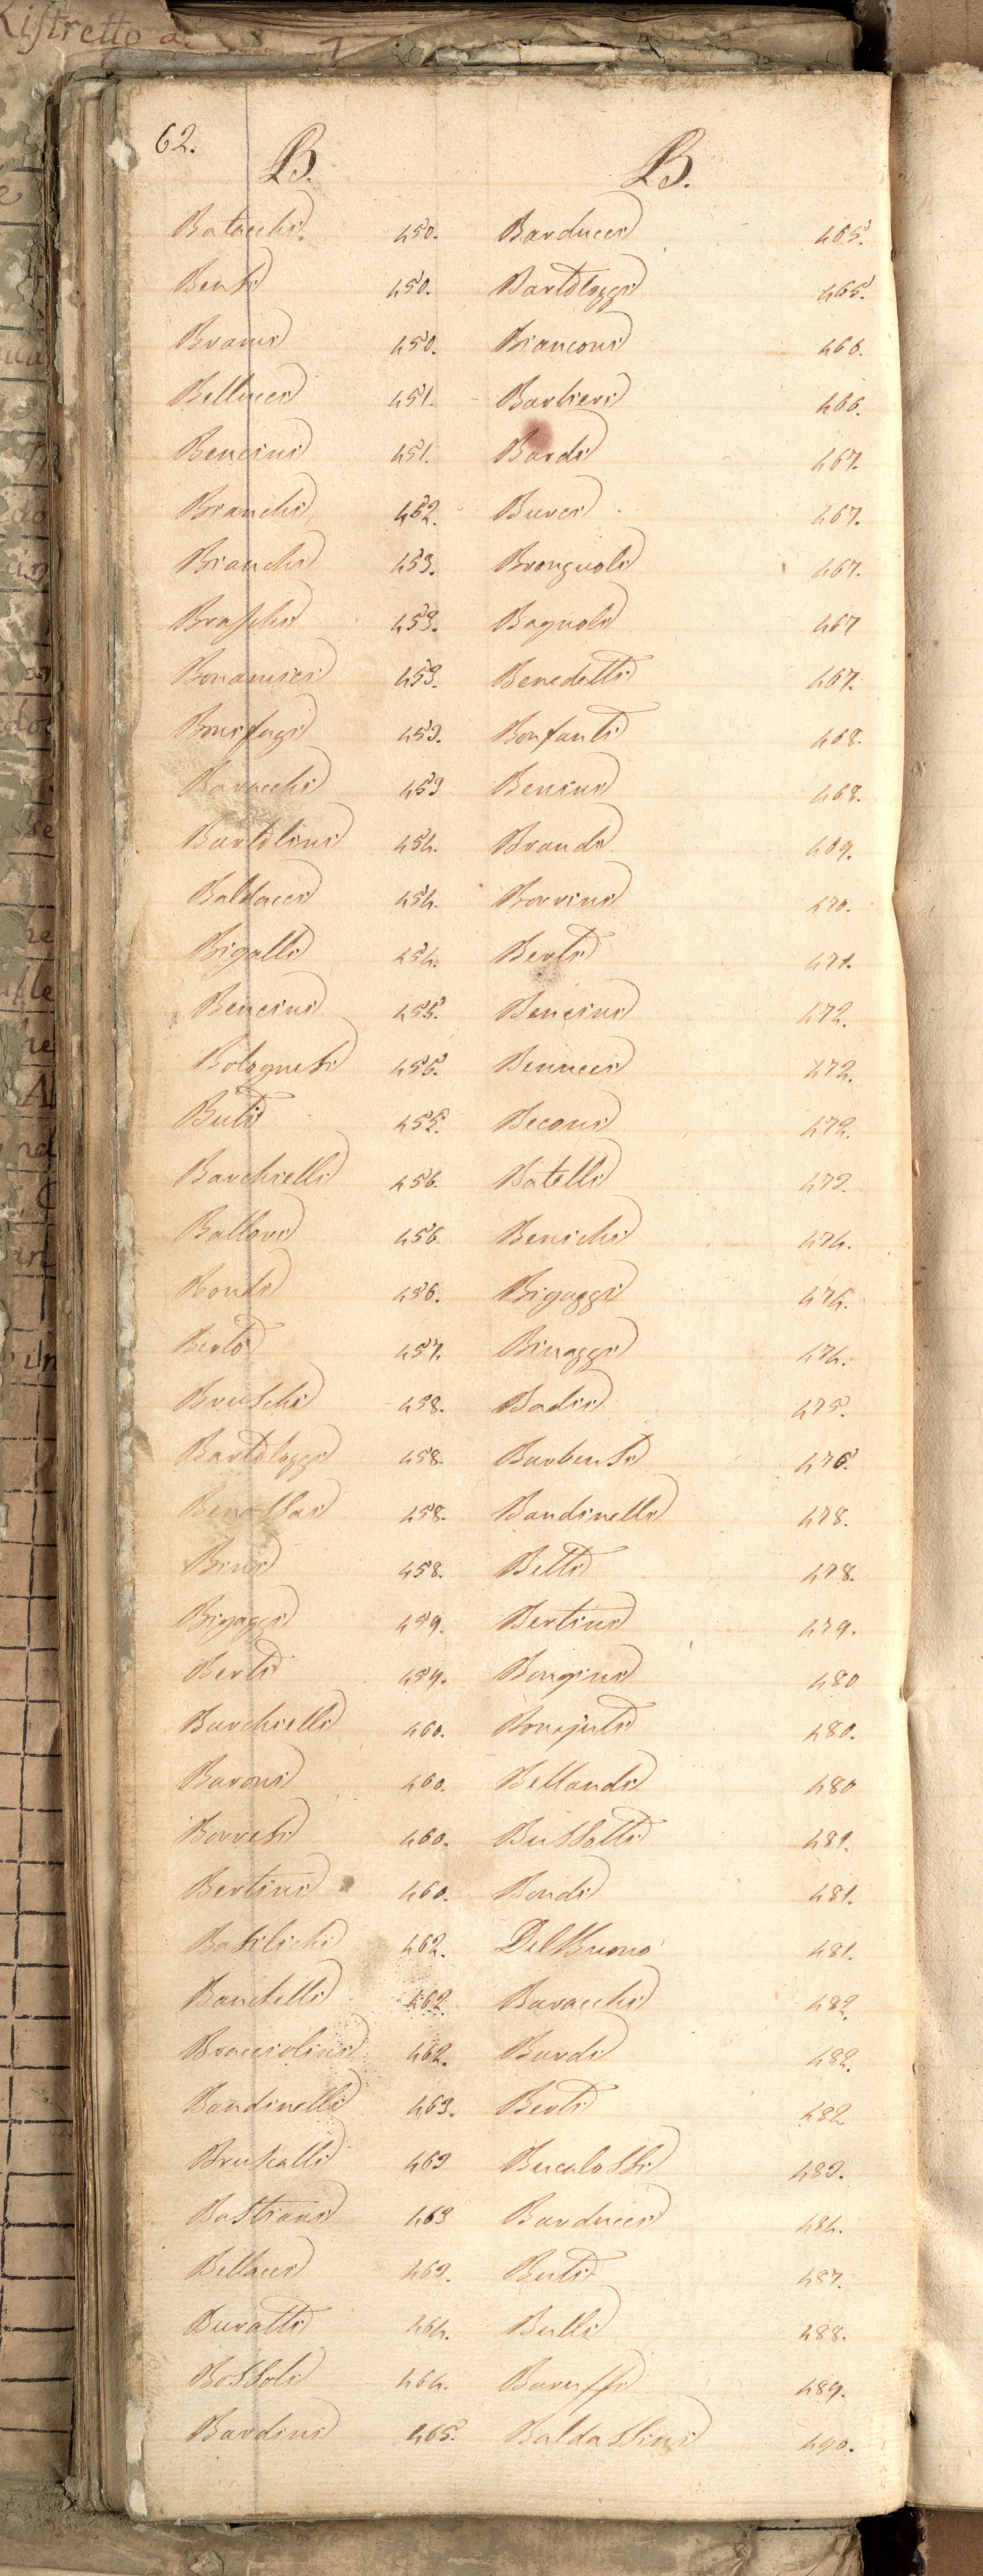 Ristretto
62.
B.
Batacchi 450.
Benti 450.
Brami 450.
Bellucci 451.
Bencini 451.
Bianchi 452.
Bianchi 453.
Braschi 453.
Bonamici 453.
Bonifazi 453.
Baracchi 453
Bartolini 454.
Baldacci 454.
Bigalli 454.
Bencini 455.
Bolognesi 455.
Buti 455.
Barchielli 456.
Ballori 456.
Bondi 456.
Berto 457.
Bruschi 458.
Bartolozzi 458.
Benassai 458.
Bini 458.
Bigazzi 459.
Berti 459.
Burchielli 460.
Baroni 460.
Borresi 460.
Bertini 460.
Basilichi 462.
Bandelli 462.
Bracciolini 462.
Bandinelli 463.
Bruscalli 463
Bastiani 463
Bellucci 463.
Buratti 464.
Bossoli 464.
Bardini 465.
B.
Barducci 465.
Bartolozzi 465.
Bianconi 466.
Barbieri 466.
Bardi 467.
Burci 467.
Brongnoli 467.
Bagnoli 467
Benedetti 467.
Bonfanti 468.
Bensini 468.
Brandi 469.
Borrini 470.
Berti 471.
Bencini 472.
Benucci 472.
Beconi 472.
Batelli 473.
Benichi 474.
Bigazzi 474.
Binazzi 474.
Badii 475.
Barbensi 476.
Bandinelli 478.
Betti 478.
Bertini 479.
Bongini 480
Bonajuti 480.
Bellandi 480
Bussotti 481.
Bondi 481.
Del Buono 481.
Baracchi 482.
Bardi 482.
Berti 482
Bucalossi 483.
Barducci 484.
Buti 487.
Bulli 488.
Baruffi 489.
Baldassini 490.